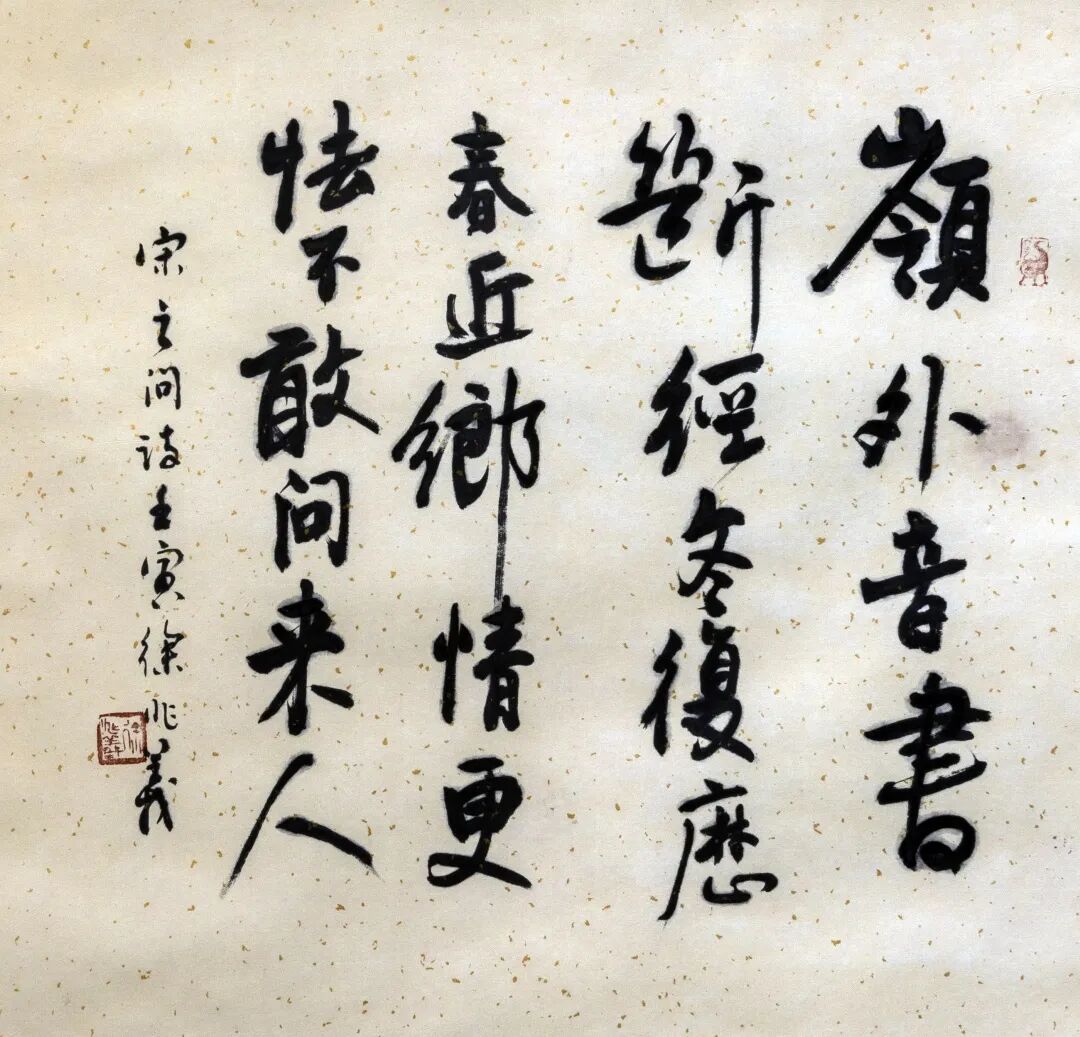 嶺外音書
斷經冬復歷
春近鄉情更
怯不敢问来人
宋之问诗壬寅徐兆義